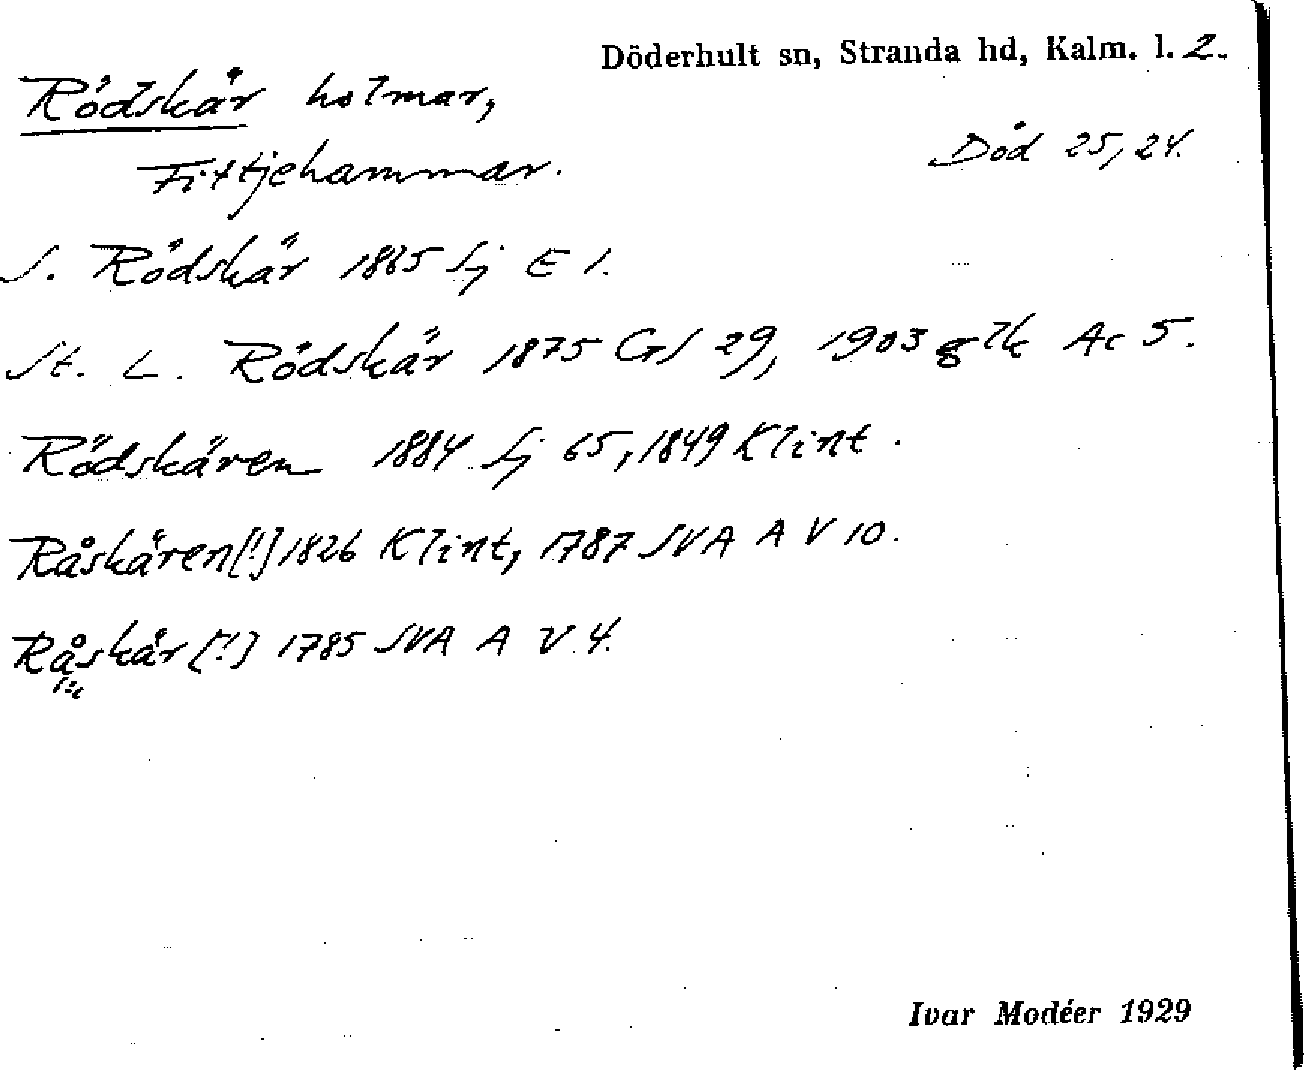 Döderhult sn, Stranda hd, Kalm. l. 2.
Rödskär holmar,
Död 25, 24.
Fittjehammar.
S. Rödskär 1865 Sj E 1.
St. L. Rödskär 1875 GS 29, 1903 glk Ac 5.
Rödskären 1884 Sj 65, 1849 Klint.
Råskären [!] 1826 Klint, 1787 SVA A V 10.
Råskär [!] 1785 SVA A V. 4.
Ivar Modéer 1929